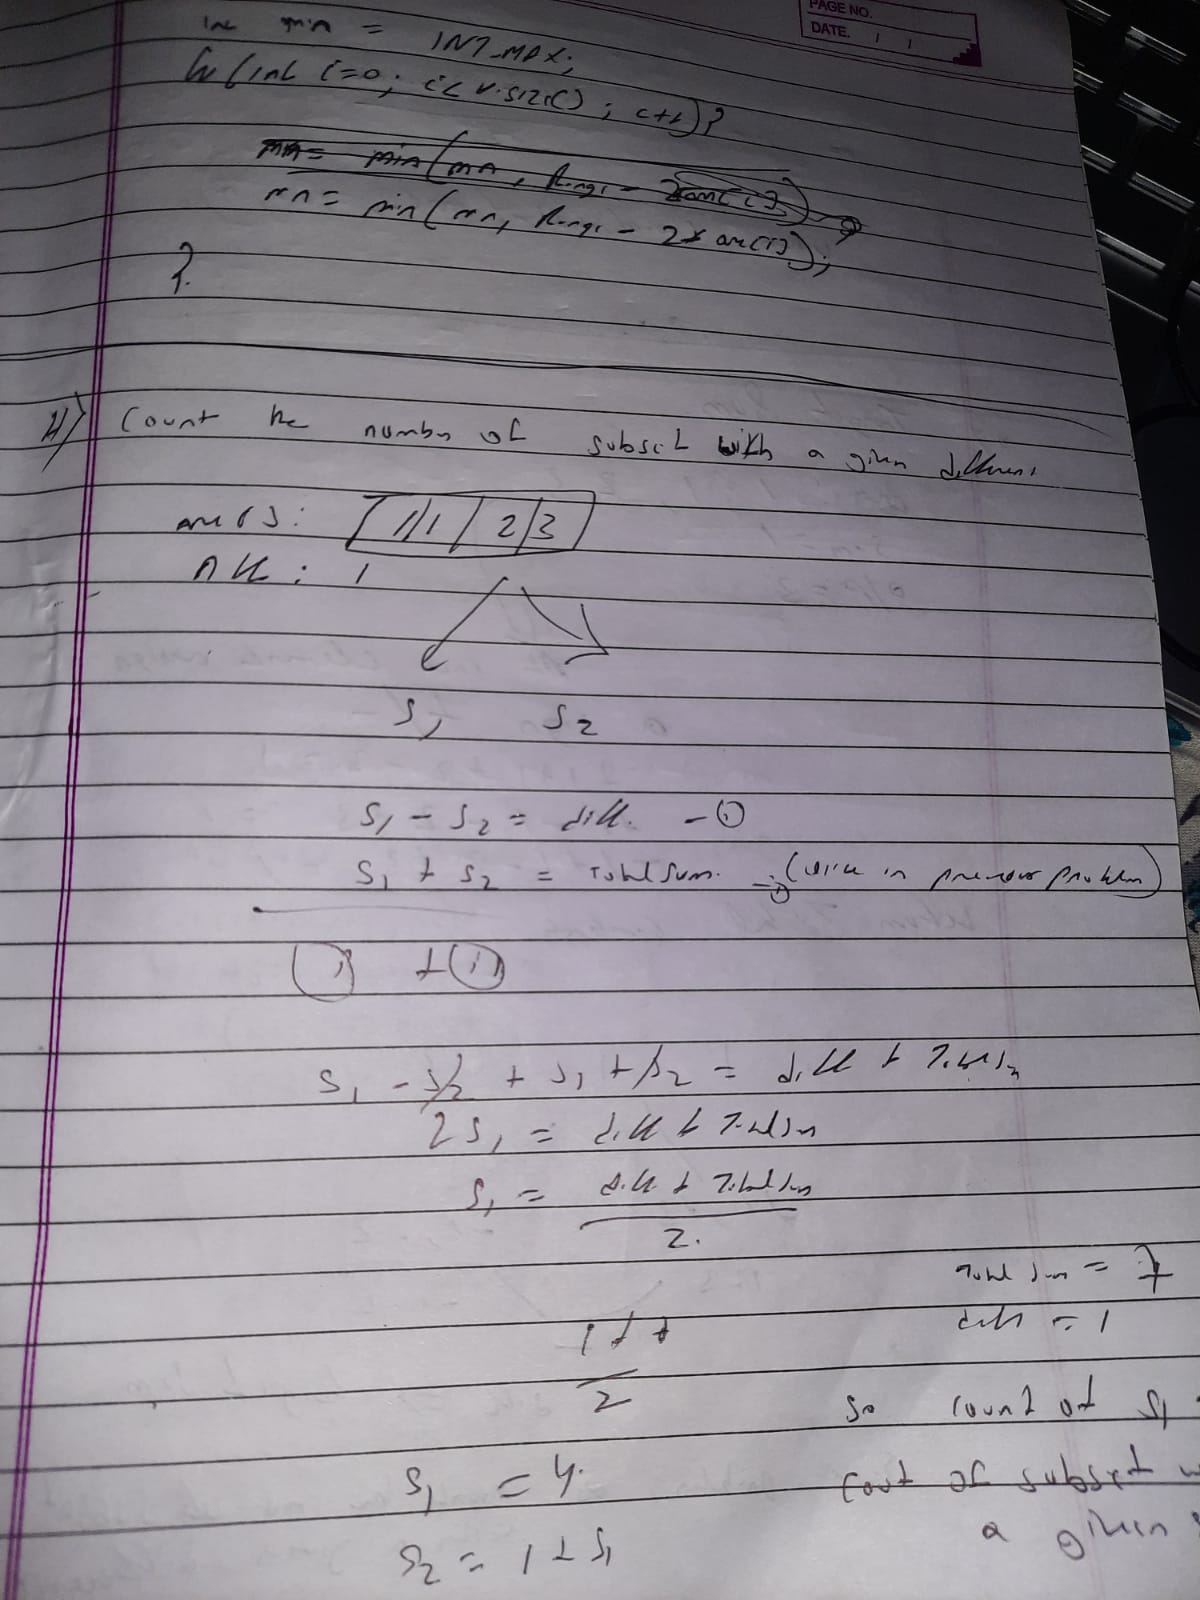 PAGE NO.
DATE. / /
int min = INT_MAX;
for(int i=0; i< v.size(); i++){
mn= min(mn, Range - 2arr[i])
mn= min(mn, Range - 2* arr[i]);
}
4) Count the number of subset with a given different
arr[]: 1 | 1 | 2 | 3
diff: 1
S1 S2
S1 - S2 = diff. - ①
S1 + S2 = Total sum. - (since in previous problem)
① + ⑪
S1 - S2 + S1 + S2 = diff + Total Sum
2S1 = diff + Total Sum
S1 = diff + Total Sum
2.
Total Sum = 7
diff = 1
1+7
2
So count of S1 =
S1 = 4.
Cout of subset w
S2 = 1+S1
a given s